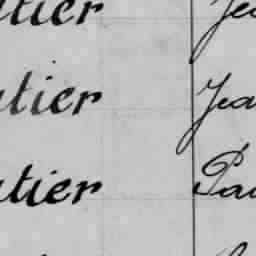 tier Jea
tier Jea
tier Pau